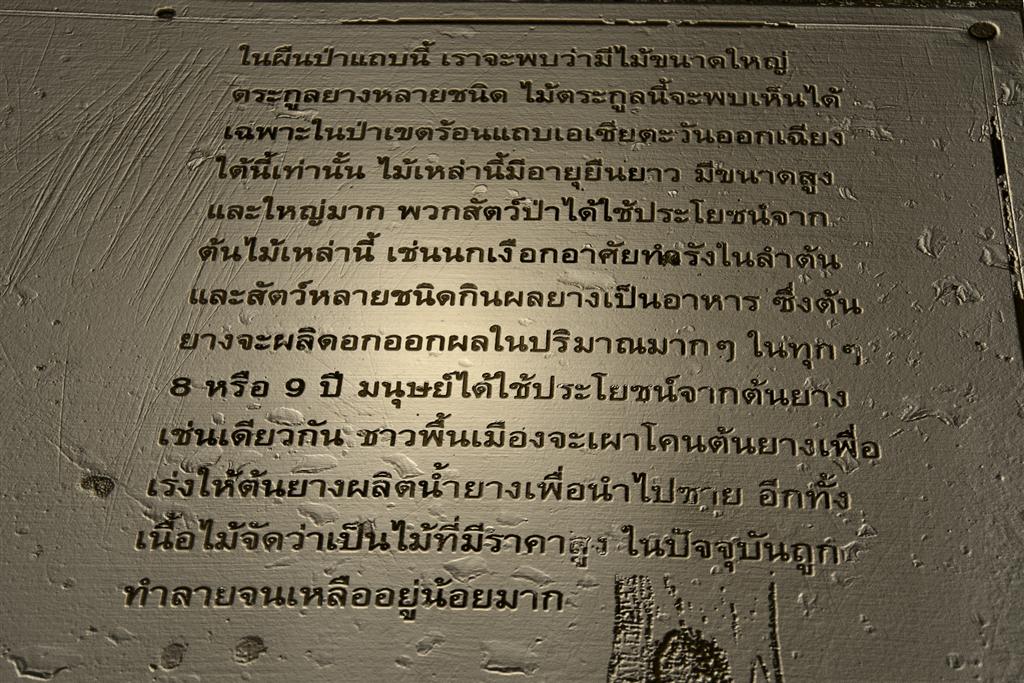 ในผืนป่าแถบนี้ เราจะพบว่ามีไม้ขนาดใหญ่
ตระกูลยางหลายชนิด ไม้ตระกูลนี้จะพบเห็นได้
เฉพาะในป่าเขตร้อนแถบเอเชียตะวันออกเฉียง
ใต้นี้เท่านั้น ไม้เหล่านี้มีอายุยืนยาว มีขนาดสูง
และใหญ่มาก พวกสัตว์ป่าได้ใช้ประโยชน์จาก
ต้นไม้เหล่านี้ เช่นนกเงือกอาศัยทำรังในลำต้น
และสัตว์หลายชนิดกินผลยางเป็นอาหาร ซึ่งต้น
ยางจะผลิดอกออกผลในปริมาณมากๆ ในทุกๆ
8 หรือ 9 ปี มนุษย์ได้ใช้ประโยชน์จากต้นยาง
เช่นเดียวกัน ชาวพื้นเมืองจะเผาโคนต้นยางเพื่อ
เร่งให้ต้นยางผลิตน้ำยางเพื่อนำไปขาย อีกทั้ง
เนื้อไม้จัดว่าเป็นไม้ที่มีราคาสูง ในปัจจุบันถูก
ทำลายจนเหลืออยู่น้อยมาก